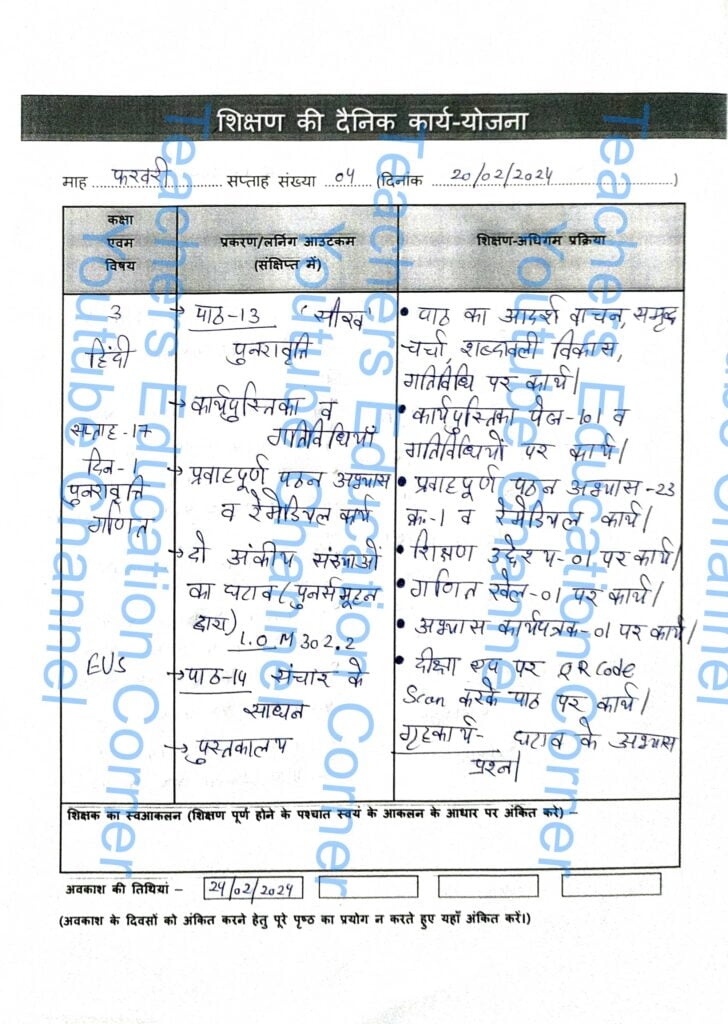 शिक्षण की दैनिक कार्य-योजना
माह फरवरी सप्ताह संख्या 04 (दिनांक 20/02/2024)
कक्षा एवम विषय
प्रकरण/लर्निंग आउटकम (संक्षिप्त में)
शिक्षण-अधिगम प्रक्रिया
3
हिंदी
सप्ताह-17
दिन-1
पुनरावृत्ति
गणित
EVS
→ पाठ-13 'सीख'
पुनरावृत्ति
→ कार्यपुस्तिका व
गतिविधियाँ
→ प्रवाहपूर्ण पठन अभ्यास
व रेमेडियल कार्य
→ दो अंकीय संख्याओं
का घटाव (पुनर्समूहन
द्वारा)
L.O M 302.2
→ पाठ-14 संचार के
साधन
→ पुस्तकालय
• पाठ का आदर्श वाचन, समृद्ध
चर्चा, शब्दावली विकास,
गतिविधि पर कार्य।
• कार्यपुस्तिका पेज-101 व
गतिविधियों पर कार्य।
• प्रवाहपूर्ण पठन अभ्यास-23
क्र.-1 व रेमेडियल कार्य।
• शिक्षण उद्देश्य-01 पर कार्य।
• गणित खेल-01 पर कार्य।
• अभ्यास कार्यपत्रक-01 पर कार्य।
• दीक्षा एप पर QR Code
Scan करके पाठ पर कार्य।
गृहकार्य- घटाव के अभ्यास
प्रश्न।
शिक्षक का स्वआकलन (शिक्षण पूर्ण होने के पश्चात स्वयं के आकलन के आधार पर अंकित करे) –
अवकाश की तिथियां – 24/02/2024
(अवकाश के दिवसों को अंकित करने हेतु पूरे पृष्ठ का प्रयोग न करते हुए यहाँ अंकित करें।)
Teachers Education Corner
Youtube Channel
Teachers Education Corner
Youtube Channel
Teachers Education Corner
Youtube Channel